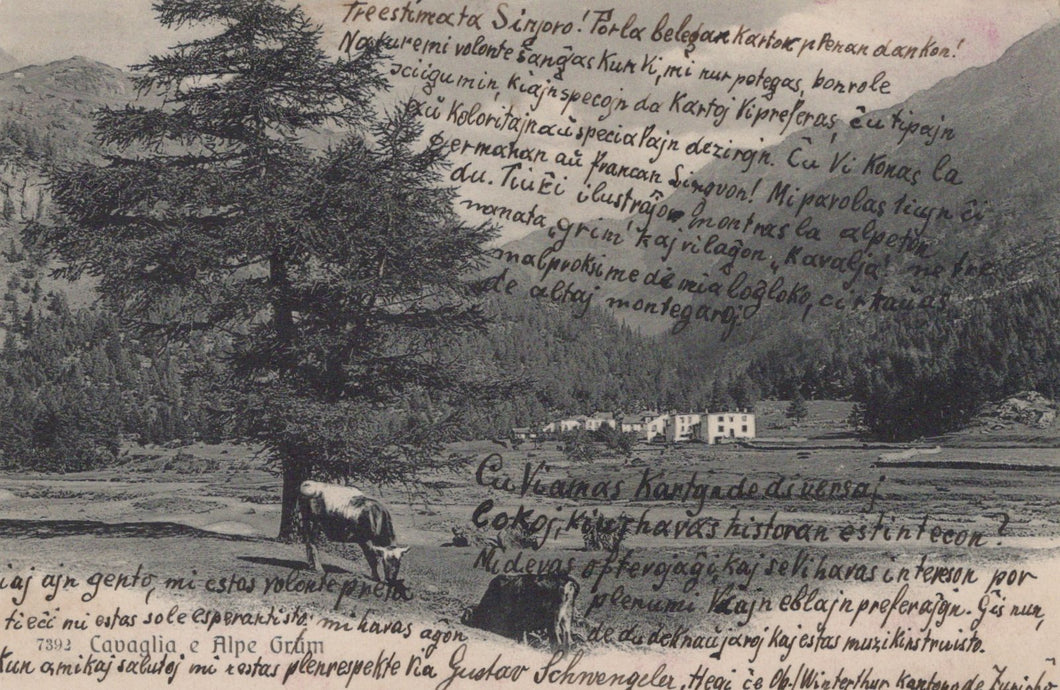 Treestimata Sinjoro! Por la belegan karton plenan dankon!
Nature mi volonte ŝanĝas kun Vi, mi nur petegas, bonvole
sciigu min, kiajn specojn da kartoj Vi preferas, ĉu tipajn
aŭ koloritajn aŭ specialajn dezirojn. Ĉu Vi konas la
germanan aŭ francan lingvon! Mi parolas tiujn ĉi
du. Tiu ĉi ilustraĵo montras la alpeton
nomata „Grim" kaj vilaĝon „Kavalja" ne tre
malproksime de mia loĝloko, ĉirkaŭas
de altaj montegaroj
Ĉu Vi amas kartojn de diversaj
lokoj, kiuj havas historan estintecon?
Mi devas ofte vojaĝi, kaj se Vi havas intereson por
iaj ajn gento, mi estas volonte preta
plenumi Viajn eblajn preferaĵojn. Ĝis nun,
tie ĉi mi estas sole esperantisto: mi havas aĝon
de dudeknaŭ jaroj kaj estas muzikinstruisto.
7392 Cavaglia e Alpe Grüm
Kun amikaj salutoj mi restas plenrespekte Via Gustav Schwengeler, Hegi ĉe Ob./Winterthur kantono de Zuricho